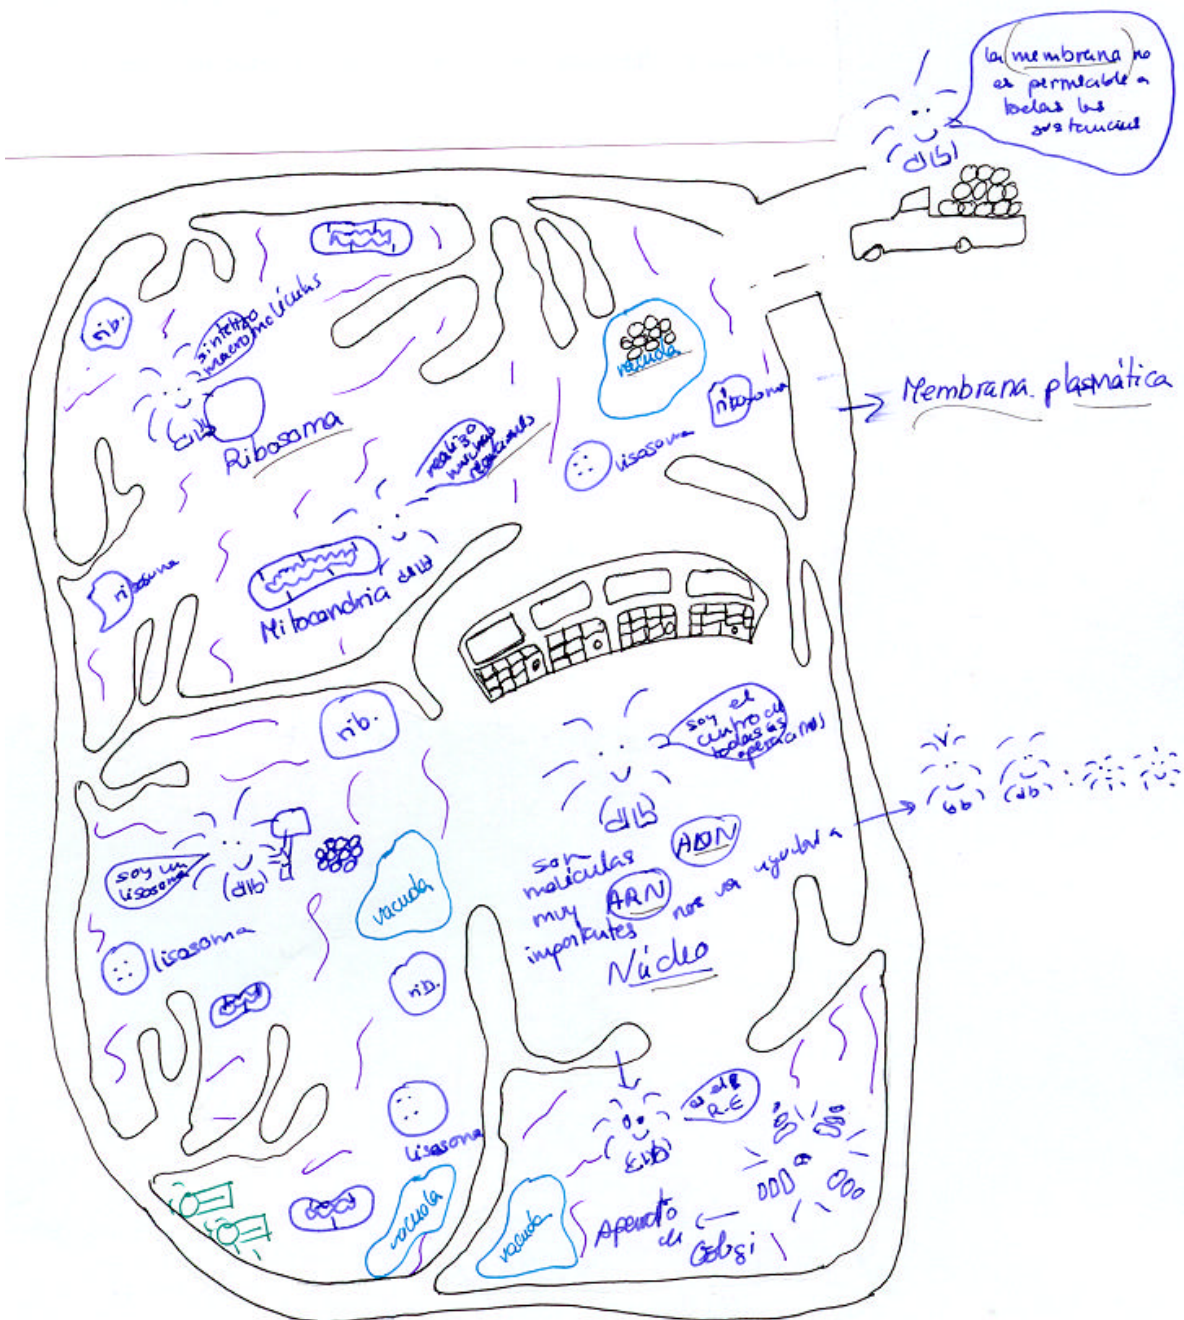 la membrana no
es permeable a
todas las
sustancias
rib.
sintetizo
macromoléculas
Ribosoma
vacuola
ribosoma
Membrana plasmática
realizo
muchas
reacciones
lisosoma
ribosoma
Mitocondria
rib.
soy el
centro de
todas las
operaciones
soy un
lisosoma
vacuola
son
moléculas
muy
importantes
ADN
ARN
nos va ayudar a
Núcleo
lisosoma
rib.
lisosoma
es el
R-E
vacuola
vacuola
Aparato
de
Golgi